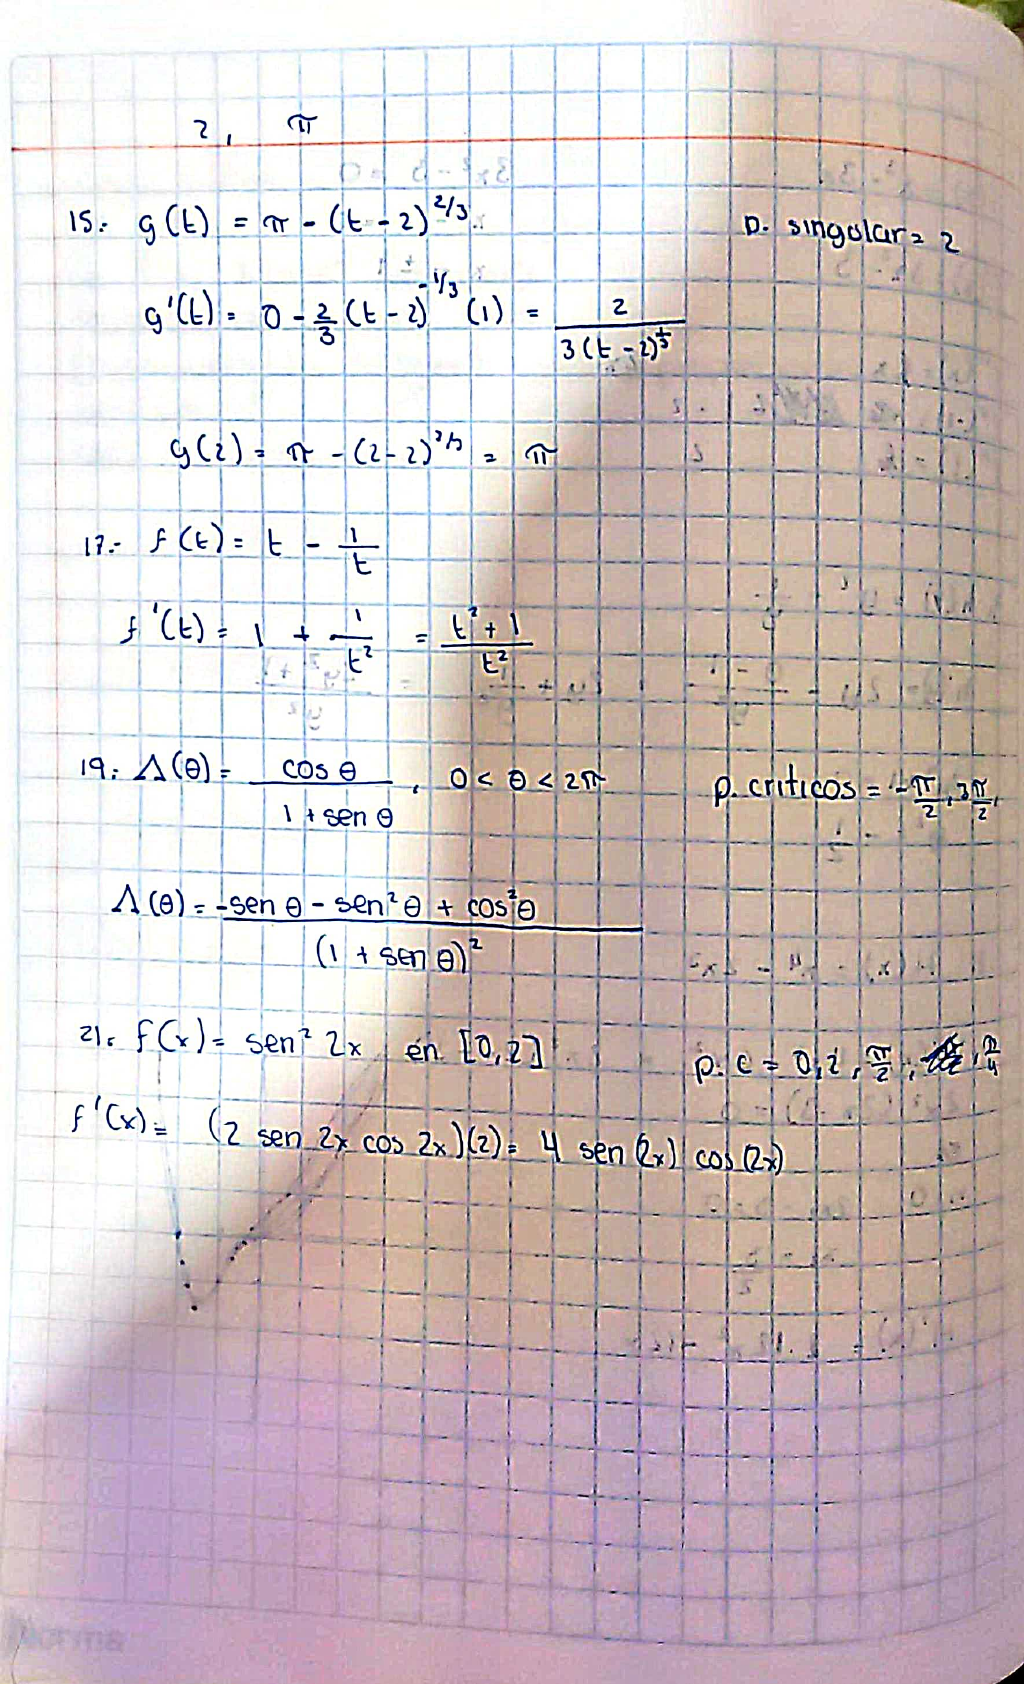 2, π
15.- g(t) = π - (t - 2)^2/3 p. singular = 2
g'(t) = 0 - 2/3 (t - 2)^-1/3 (1) = 2 / 3(t - 2)^1/3
g(2) = π - (2 - 2)^2/3 = π
17.- f(t) = t - 1/t
f'(t) = 1 + 1/t² = t² + 1 / t²
19. Λ(θ) = cos θ / 1 + sen θ , 0 < θ < 2π p. criticos = -π/2, 3π/2,
Λ(θ) = -sen θ - sen² θ + cos² θ / (1 + sen θ)²
21. f(x) = sen² 2x en [0,2] p. c = 0, 2, π/2, π/4
f'(x) = (2 sen 2x cos 2x)(2) = 4 sen (2x) cos (2x)
Norma